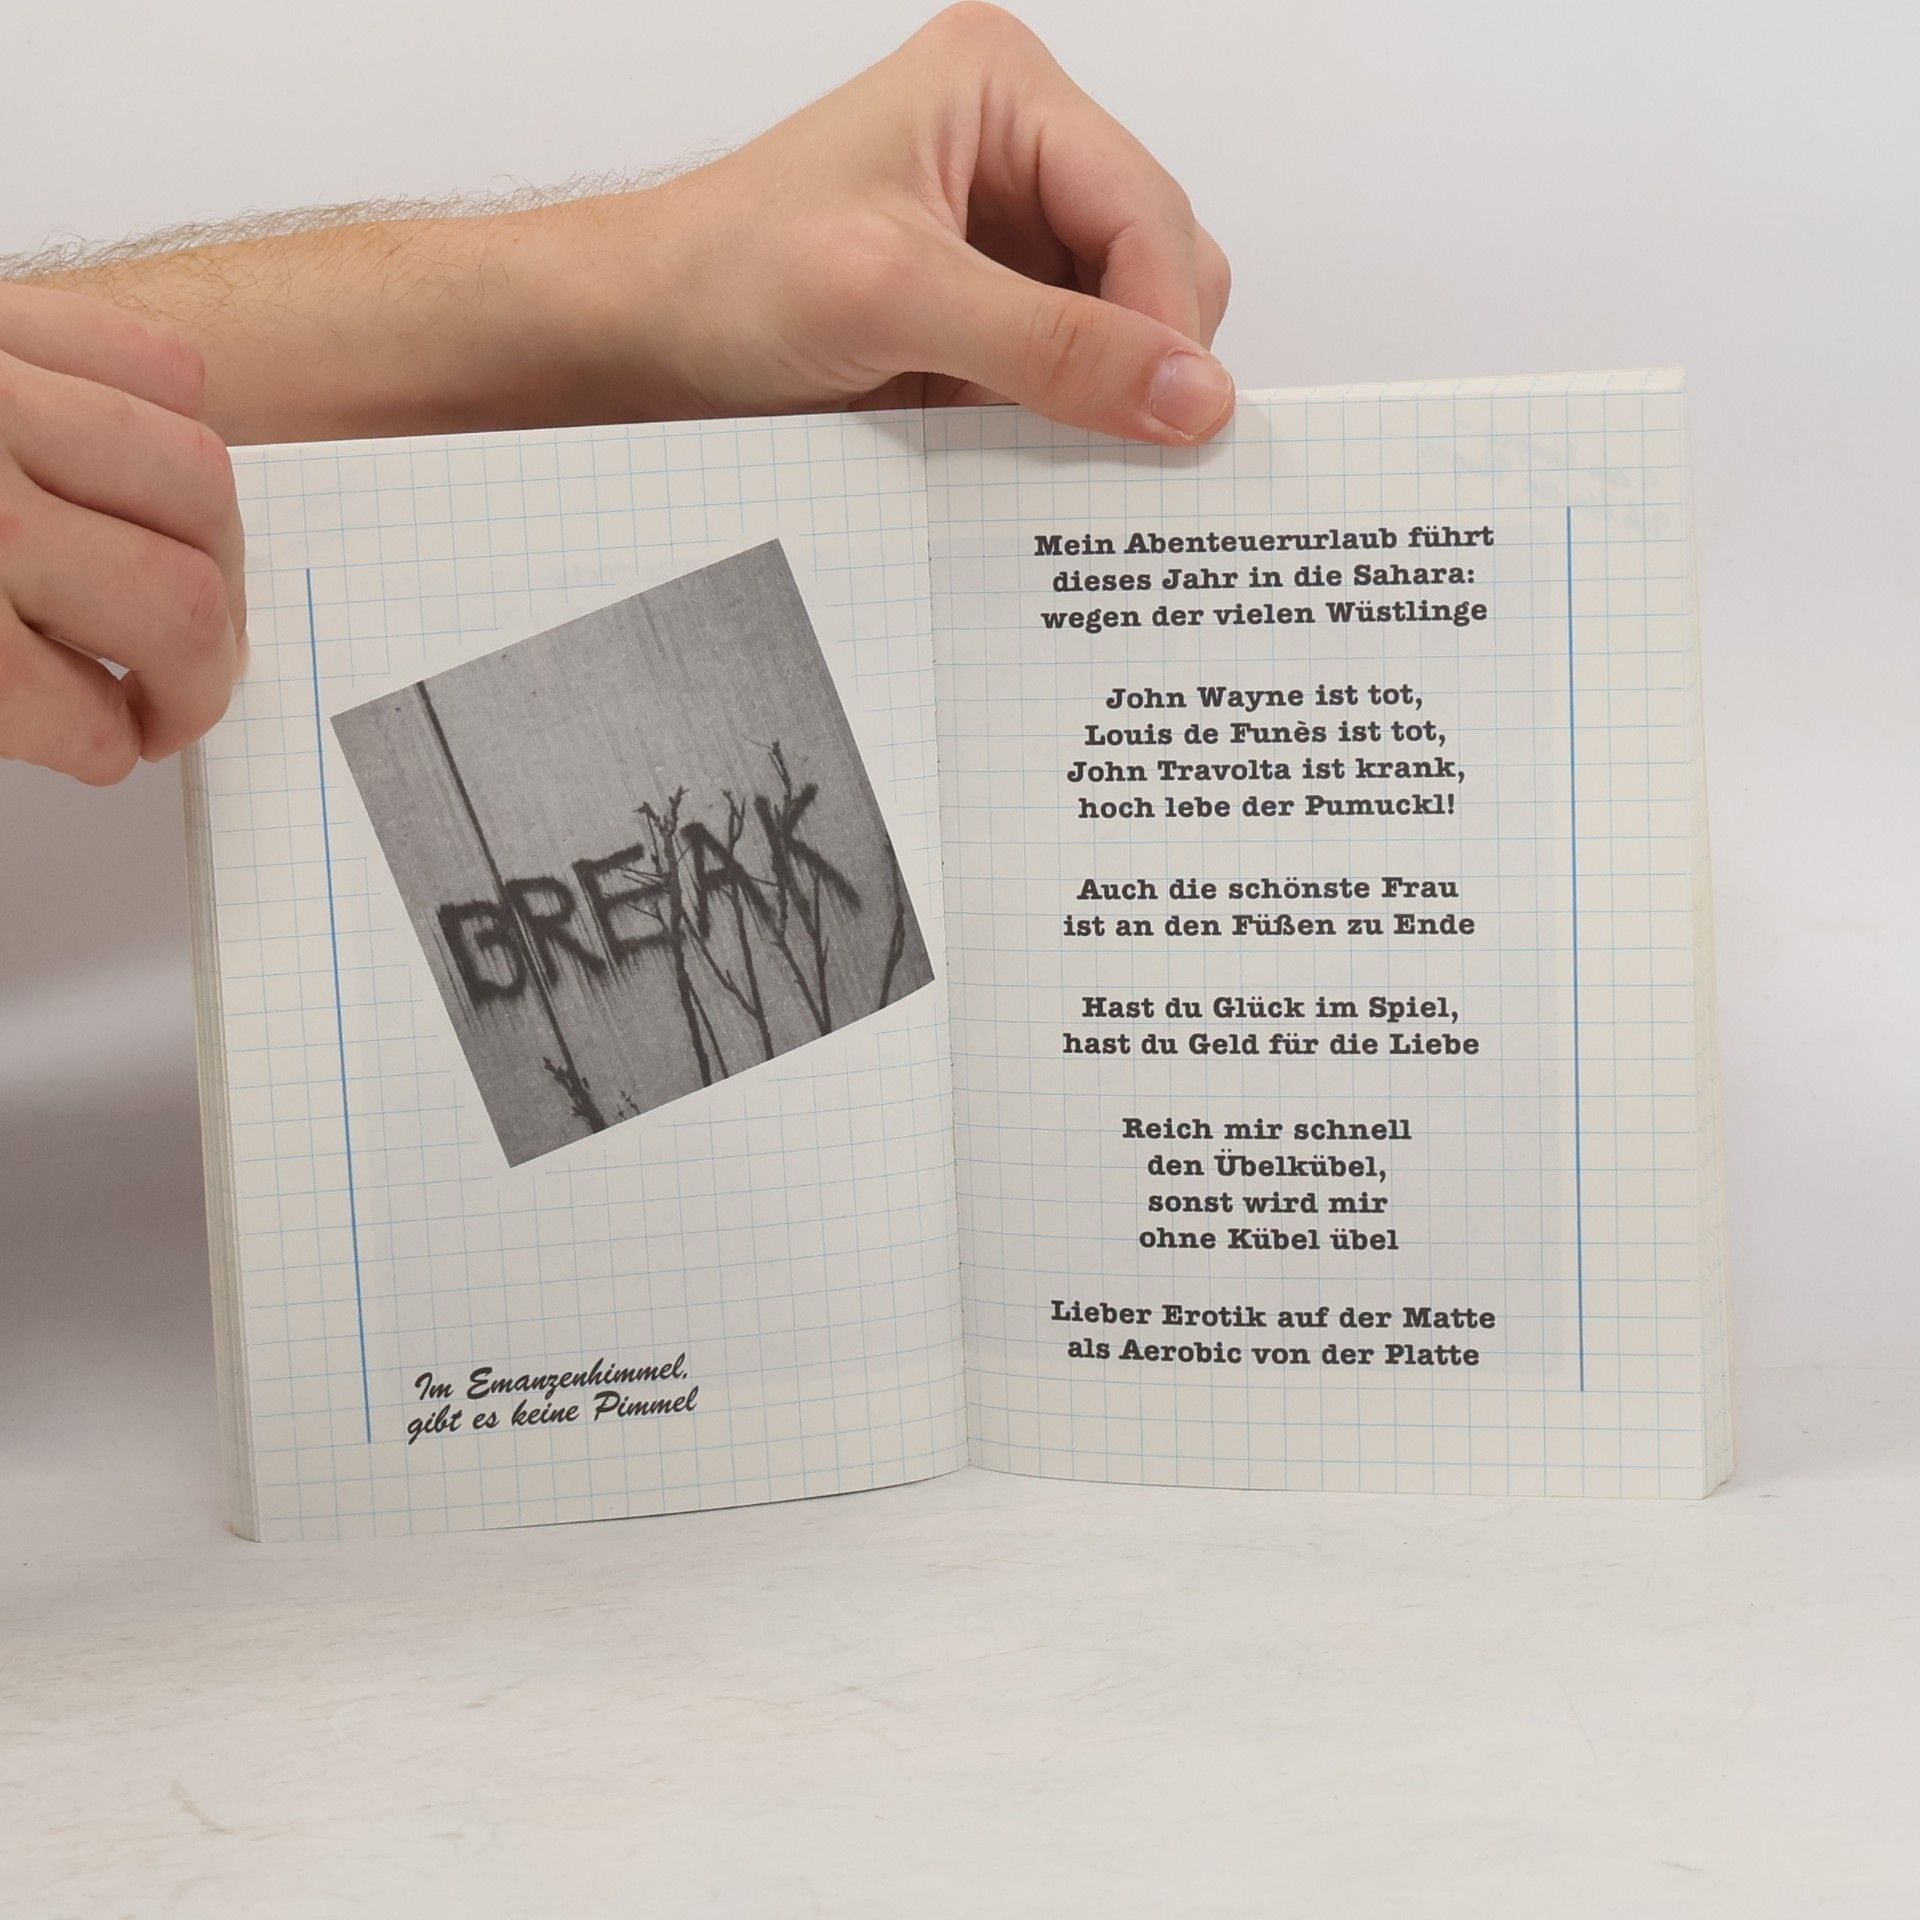 BREAK
Im Emanzenhimmel,
gibt es keine Pimmel
Mein Abenteuerurlaub führt
dieses Jahr in die Sahara:
wegen der vielen Wüstlinge
John Wayne ist tot,
Louis de Funès ist tot,
John Travolta ist krank,
hoch lebe der Pumuckl!
Auch die schönste Frau
ist an den Füßen zu Ende
Hast du Glück im Spiel,
hast du Geld für die Liebe
Reich mir schnell
den Übelkübel,
sonst wird mir
ohne Kübel übel
Lieber Erotik auf der Matte
als Aerobic von der Platte